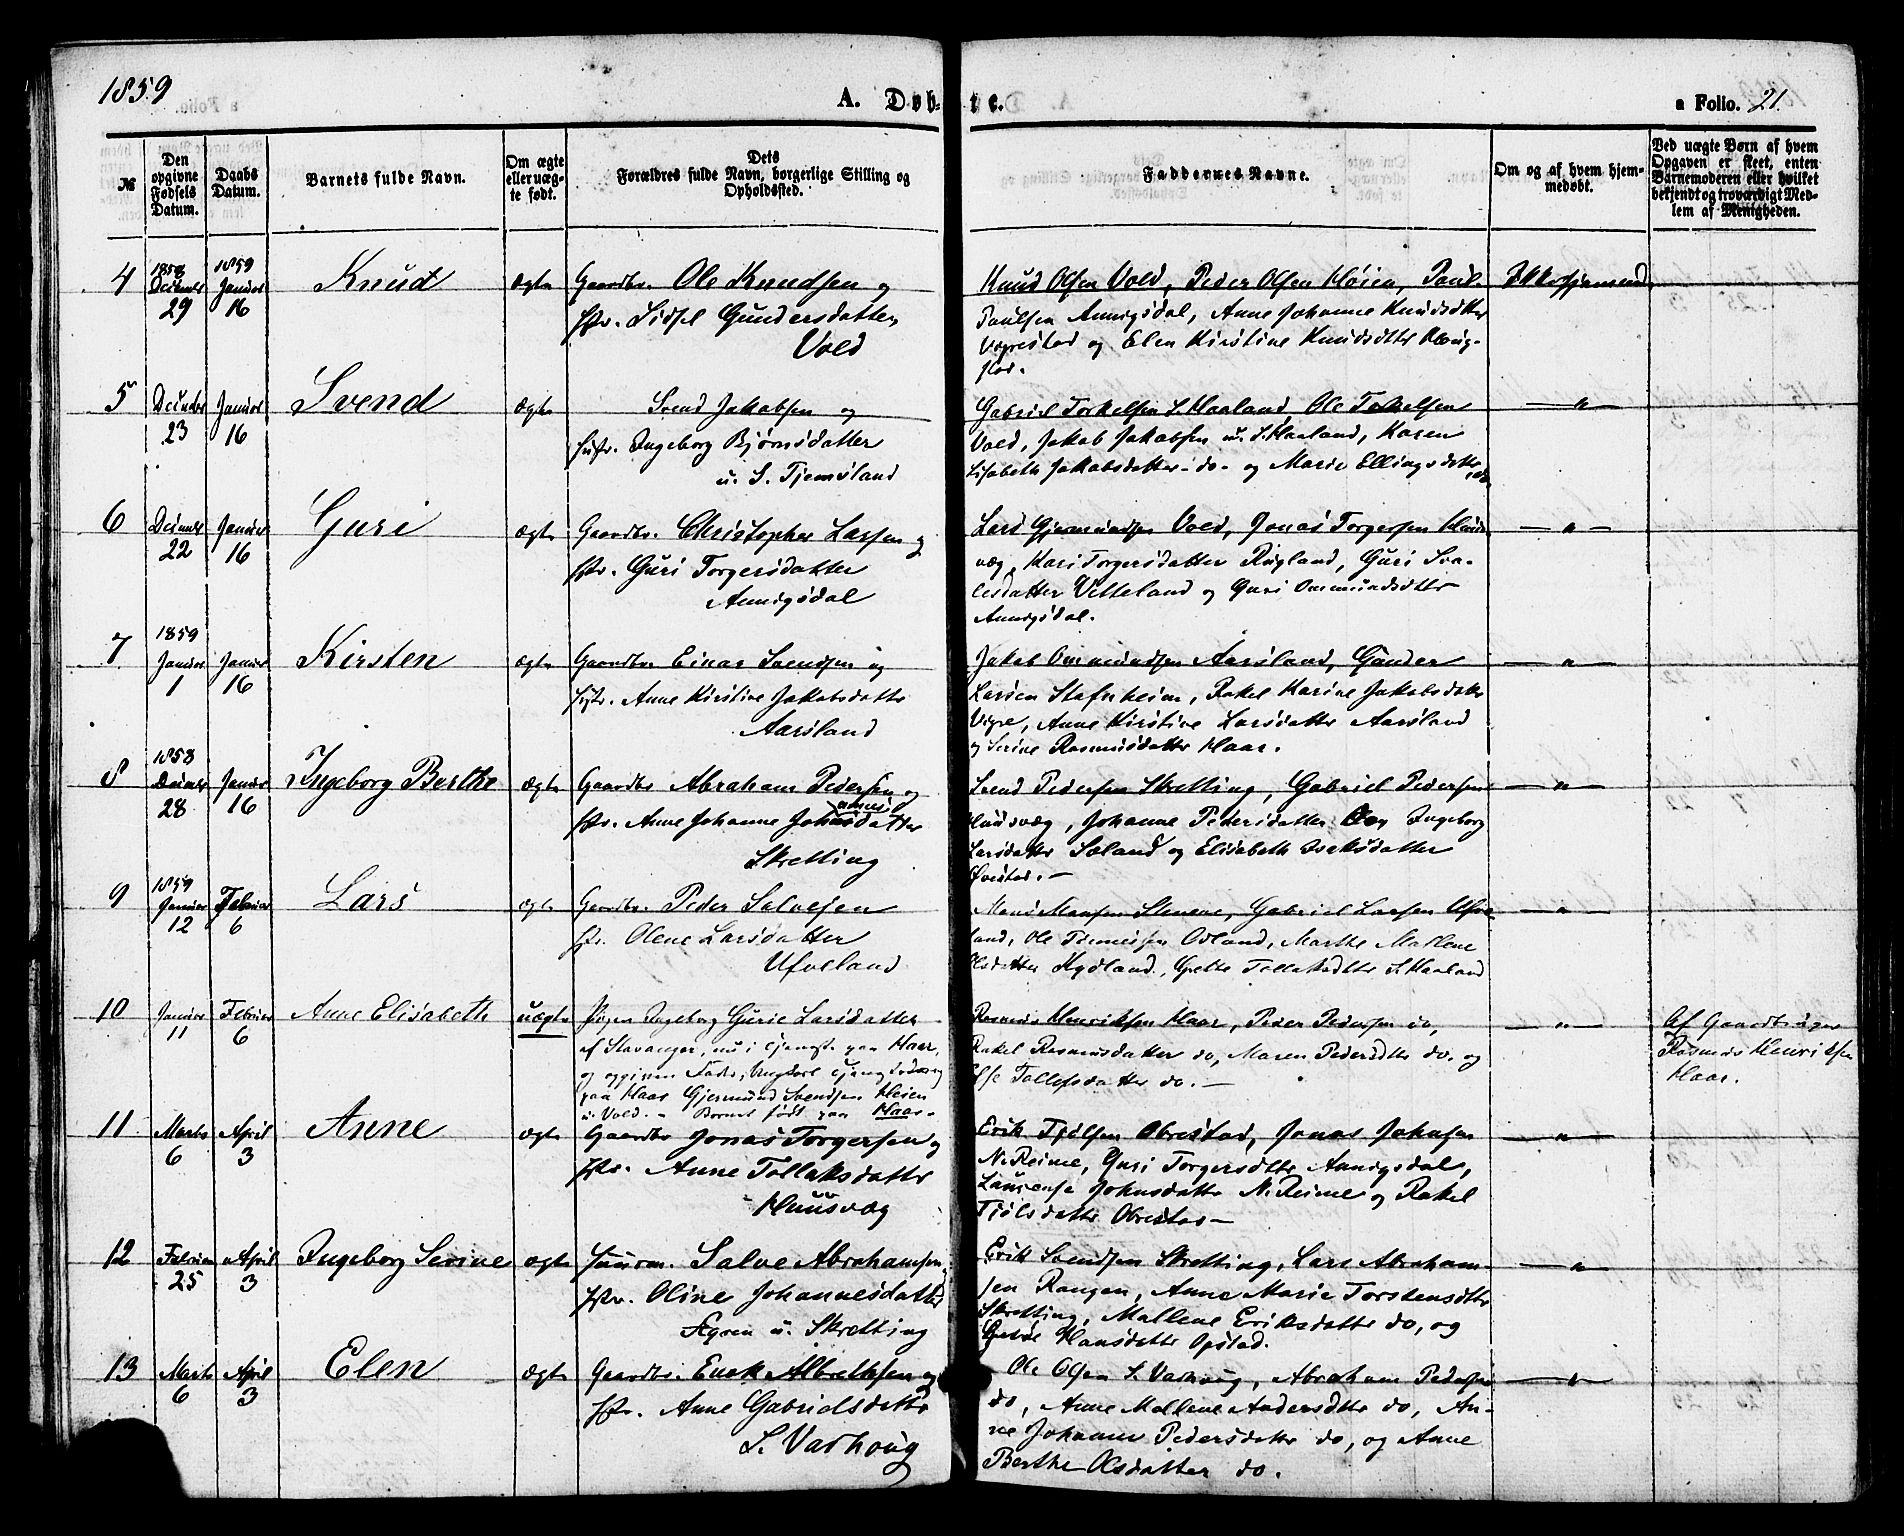 1859
A. Døb-
te.
a Folio. 21.
№
Den opgivne Fødsels Datum.
Daabs Datum.
Barnets fulde Navn.
Om ægte eller uægte født.
Dets Forældres fulde Navn, borgerlige Stilling og Opholdssted.
Faddernes Navne.
Om og af hvem hjemmedøbt.
Ved uægte Børn af hvem Opgaven er skeet, enten Barnemoderen eller hvilket bekjendt og troværdigt Medlem af Menigheden.
4
1858
29
1859
Januar
16
Knud
ægte
Gaardbr. Ole Knudsen og
Hstr. Sidsel Gundersdatter
Vold
Knud Olsen Vold, Peder Olsen Høien, Paul
Paulsen Annigsdal, Anne Johanne Knudsdtter
og Elen Kirstine Knudsdtter
5
23
Januar
16
Svend
ægte
Svend Jakobsen og
Hstr. Ingeborg Bjørnsdatter
u. S. Tjemsland
Gabriel Torkelsen S. Haaland, Ole Torkelsen
Vold, Jakob Jakobsen u. S. Haaland, Karen
Lisabeth Jakobsdatter do og Marie Ellingsdatter do
6
22
Januar
16
Guri
ægte
Gaardbr. Christopher Larsen og
Hstr. Guri Torgersdatter
Annigsdal
Lars Gjermundsen Vold, Jonas Torgersen Huus-
væg, Kari Torgersdatter Rugland, Guri Sva-
lesdatter Vetteland og Guri Ommundsdtter
Annigsdal.
7
1859
Januar
1
Januar
16
Kirsten
ægte
Gaardbr. Einar Svendsen og
Hstr. Anne Kirstine Jakobsdatter
Aarsland
Jakob Ommundsen Aarsland, Gunder
Larsen Stafnheim, Rakel Karine Jakobsdatter
Vigre, Anne Kirstine Larsdatter Aarsland
og Serine Rasmusdatter Haar.
8
1858
28
Januar
16
Ingeborg Berthe
ægte
Gaardbr. Abraham Pedersen og
Hstr. Anne Johanne
Skretting
Svend Pedersen Skretting, Gabriel Pedersen
Huusvæg, Johanne Pedersdatter Ingeborg
Larsdatter Søland og Elisabeth Isaksdatter
9
1859
Januar
12
Februar
6
Lars
ægte
Gaardbr. Peder Salvesen
Hstr. Olene Larsdatter
Ufveland
Mons Monsen Steneve, Gabriel Larsen Ufve-
land, Ole Tønnessen Odland, Marthe Malene
Olsdatter Hydland, Grethe Tollaksdtter S. Haaland
10
Januar
11
Februar
6
Anne Elisabeth
uægte
Pigen Ingeborg Gurie Larsdatter
af Stavanger, nu i Tjeneste paa Haar,
og opgiven Fader, Ungkarl
paa Haar Gjermund Svendsen
u. Vold. - Barnet født paa Haar-
Rasmus Henriksen Haar, Peder Pedersen do,
Rakel Rasmusdatter do, Maren Pedersdtter do. og
Else Tollefsdatter do. -
Af Gaardbruger
Rasmus Henriksen
Haar.
11
Marts
6
April
3
Anne
ægte
Gaardbr Jonas Torgersen og
Hstr. Anne Tollaksdatter
Huusvæg
Erik Tjølsen Obrestad, Jonas Johnsen
N. Reime, Guri Torgersdtter Annigsdal,
Johnsdatter N. Reime og Rakel
Tjølsdatter Obrestad -
12
25
April
3
Ingeborg Serine
ægte
Huusm. Salve Abrahamsen
Hstr. Oline Johannesdatter
u. Skretting
Erik Svendsen Skretting, Lars Abraham-
sen Rangen, Anne Marie Torstensdtter
Skretting, Mallene Eriksdatter do, og
Hansdatter Opstad.
13
Marts
6
April
3
Elen
ægte
Gaardbr. Enok Albretsen og
Hstr. Anne Gabrielsdatter
S. Varhoug
Ole Olsen S. Varhoug, Abraham Pedersen
do, Anne Mallene Andersdtter do, An-
ne Johanne Pedersdatter do, og Anne
Berthe Olsdatter do.